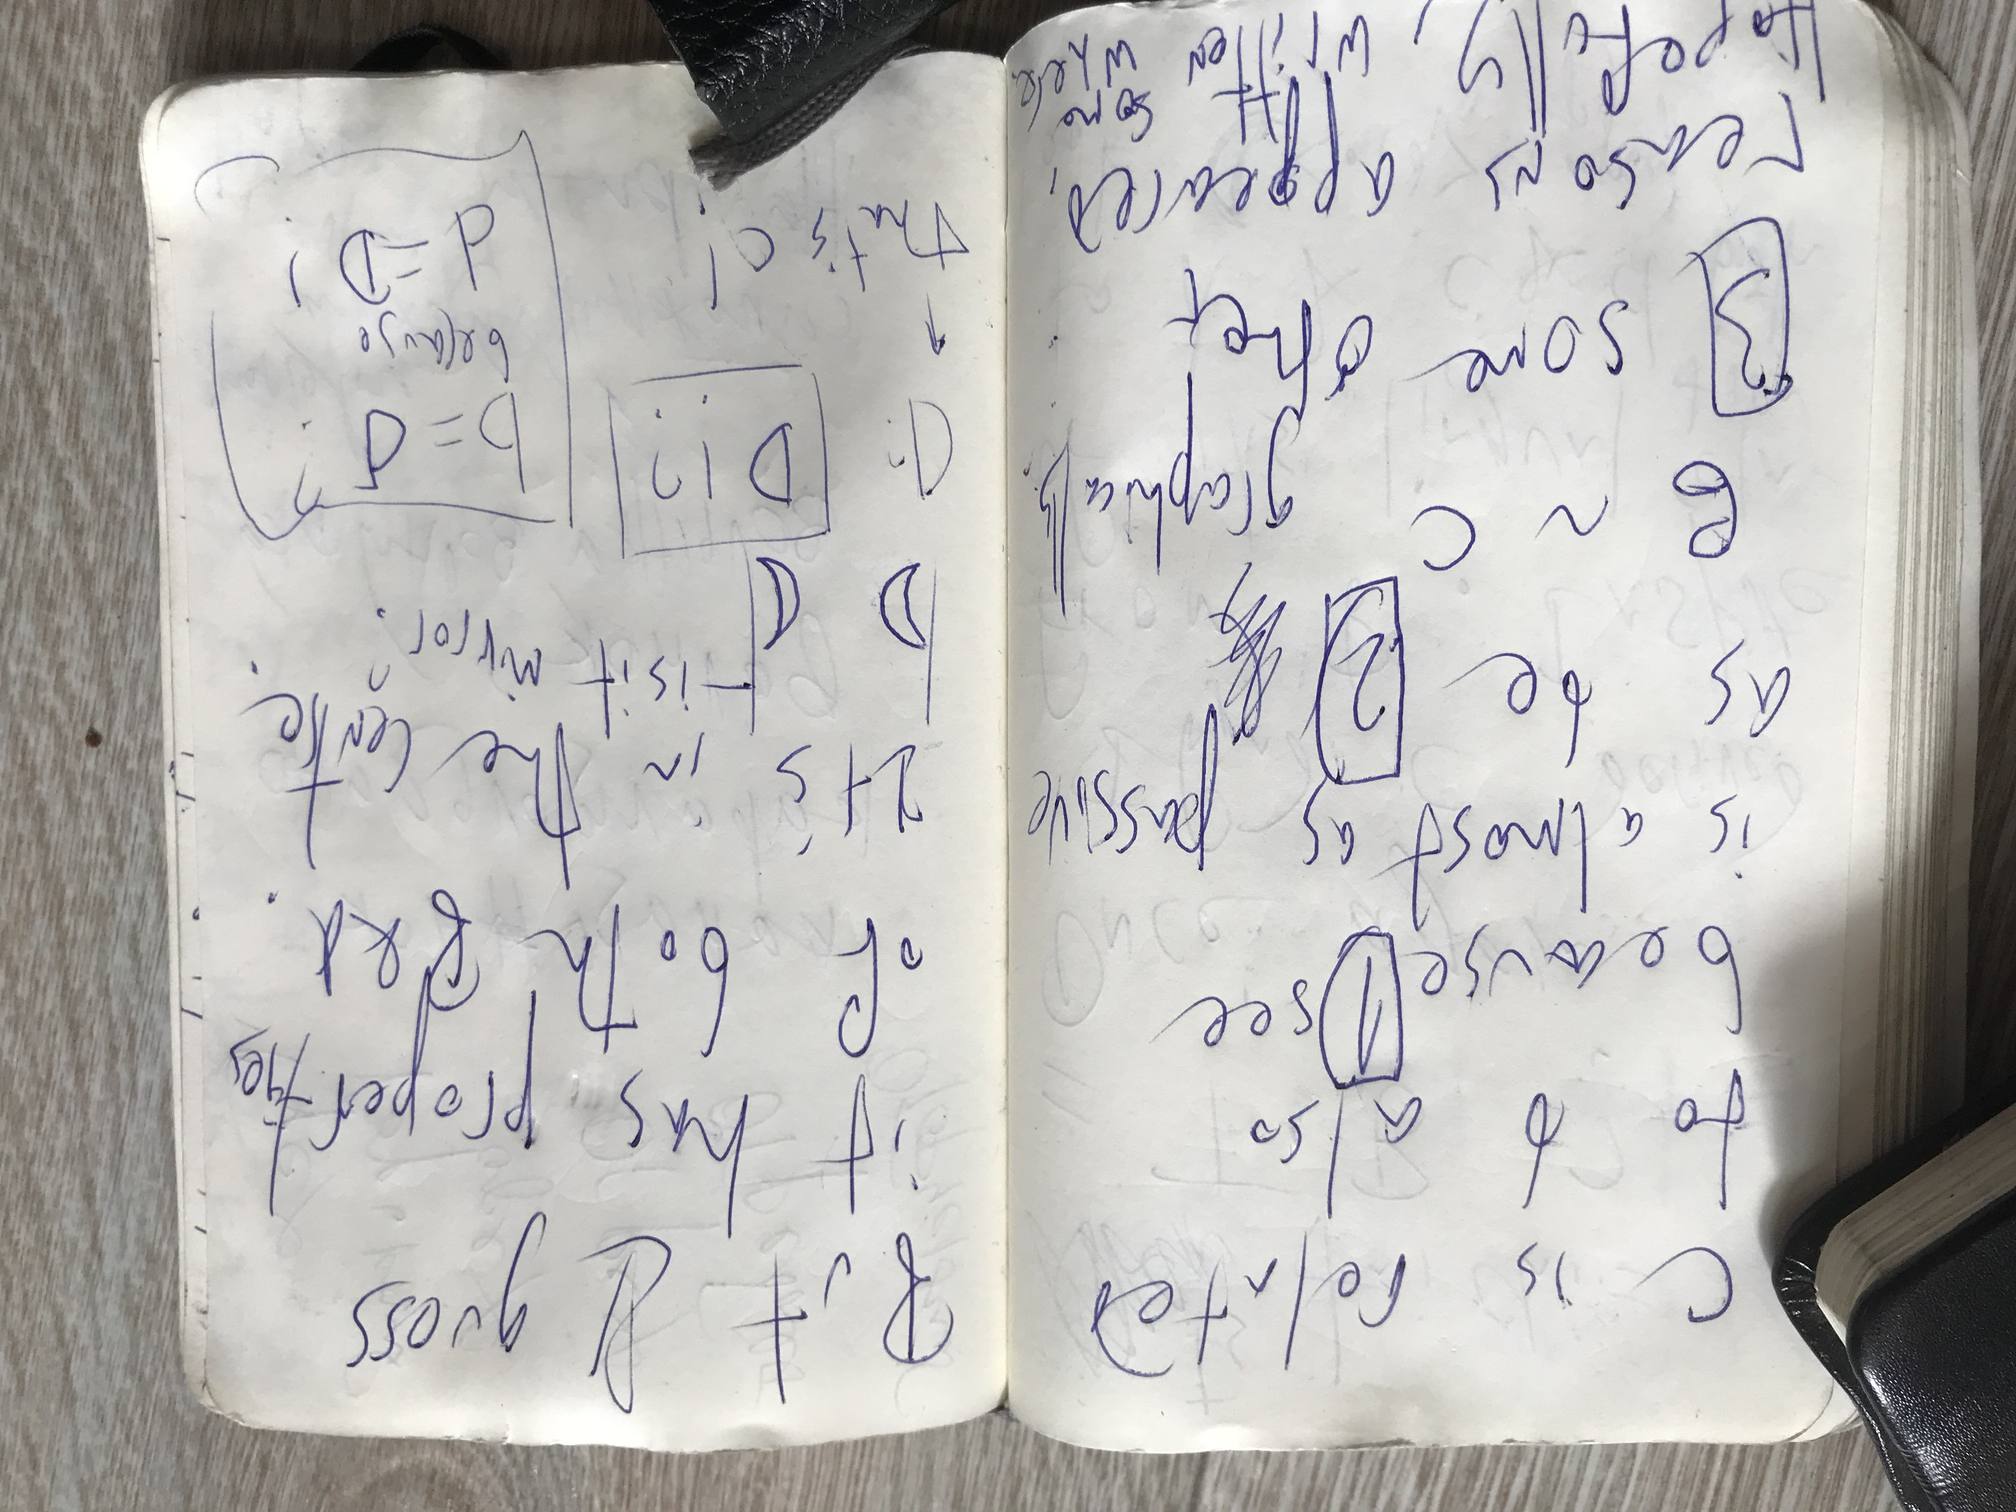 C is related
to d also
because 1 see
is almost as passive
as be 2
B ~ C graphically
3 some other
reasons appeared.
Hopefully, written some
where.
But I guess
it has properties
of both B & d.
It's in the centre.
- is it mirror?
D D
because
That's